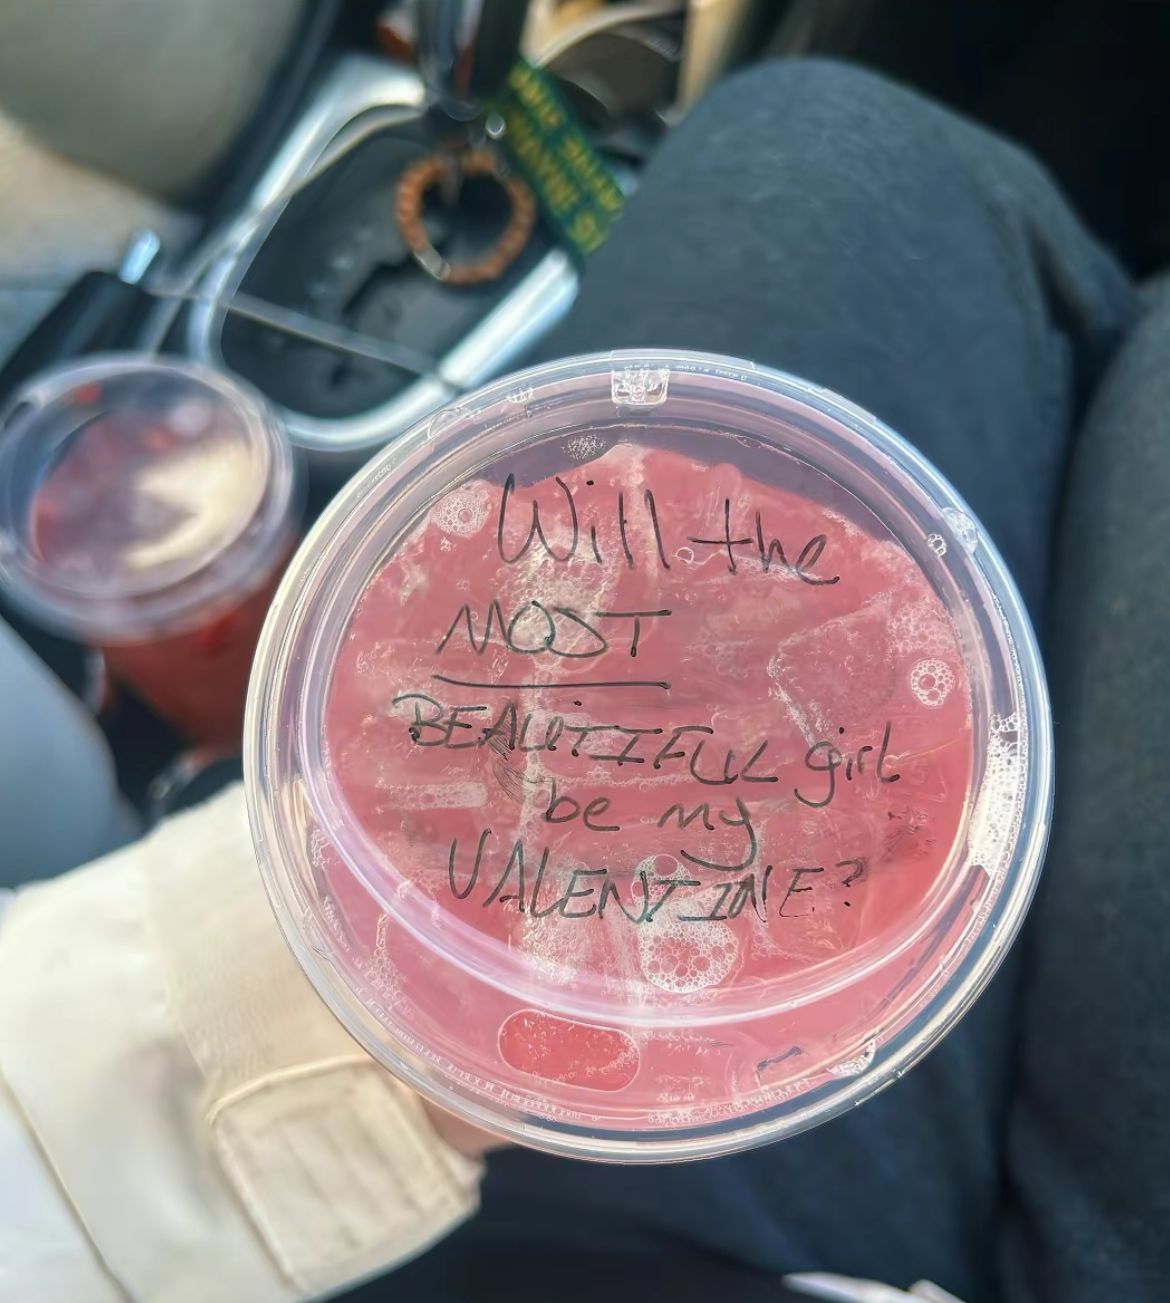 Will the
MOST
BEAUTIFUL girl
be my
VALENTINE?